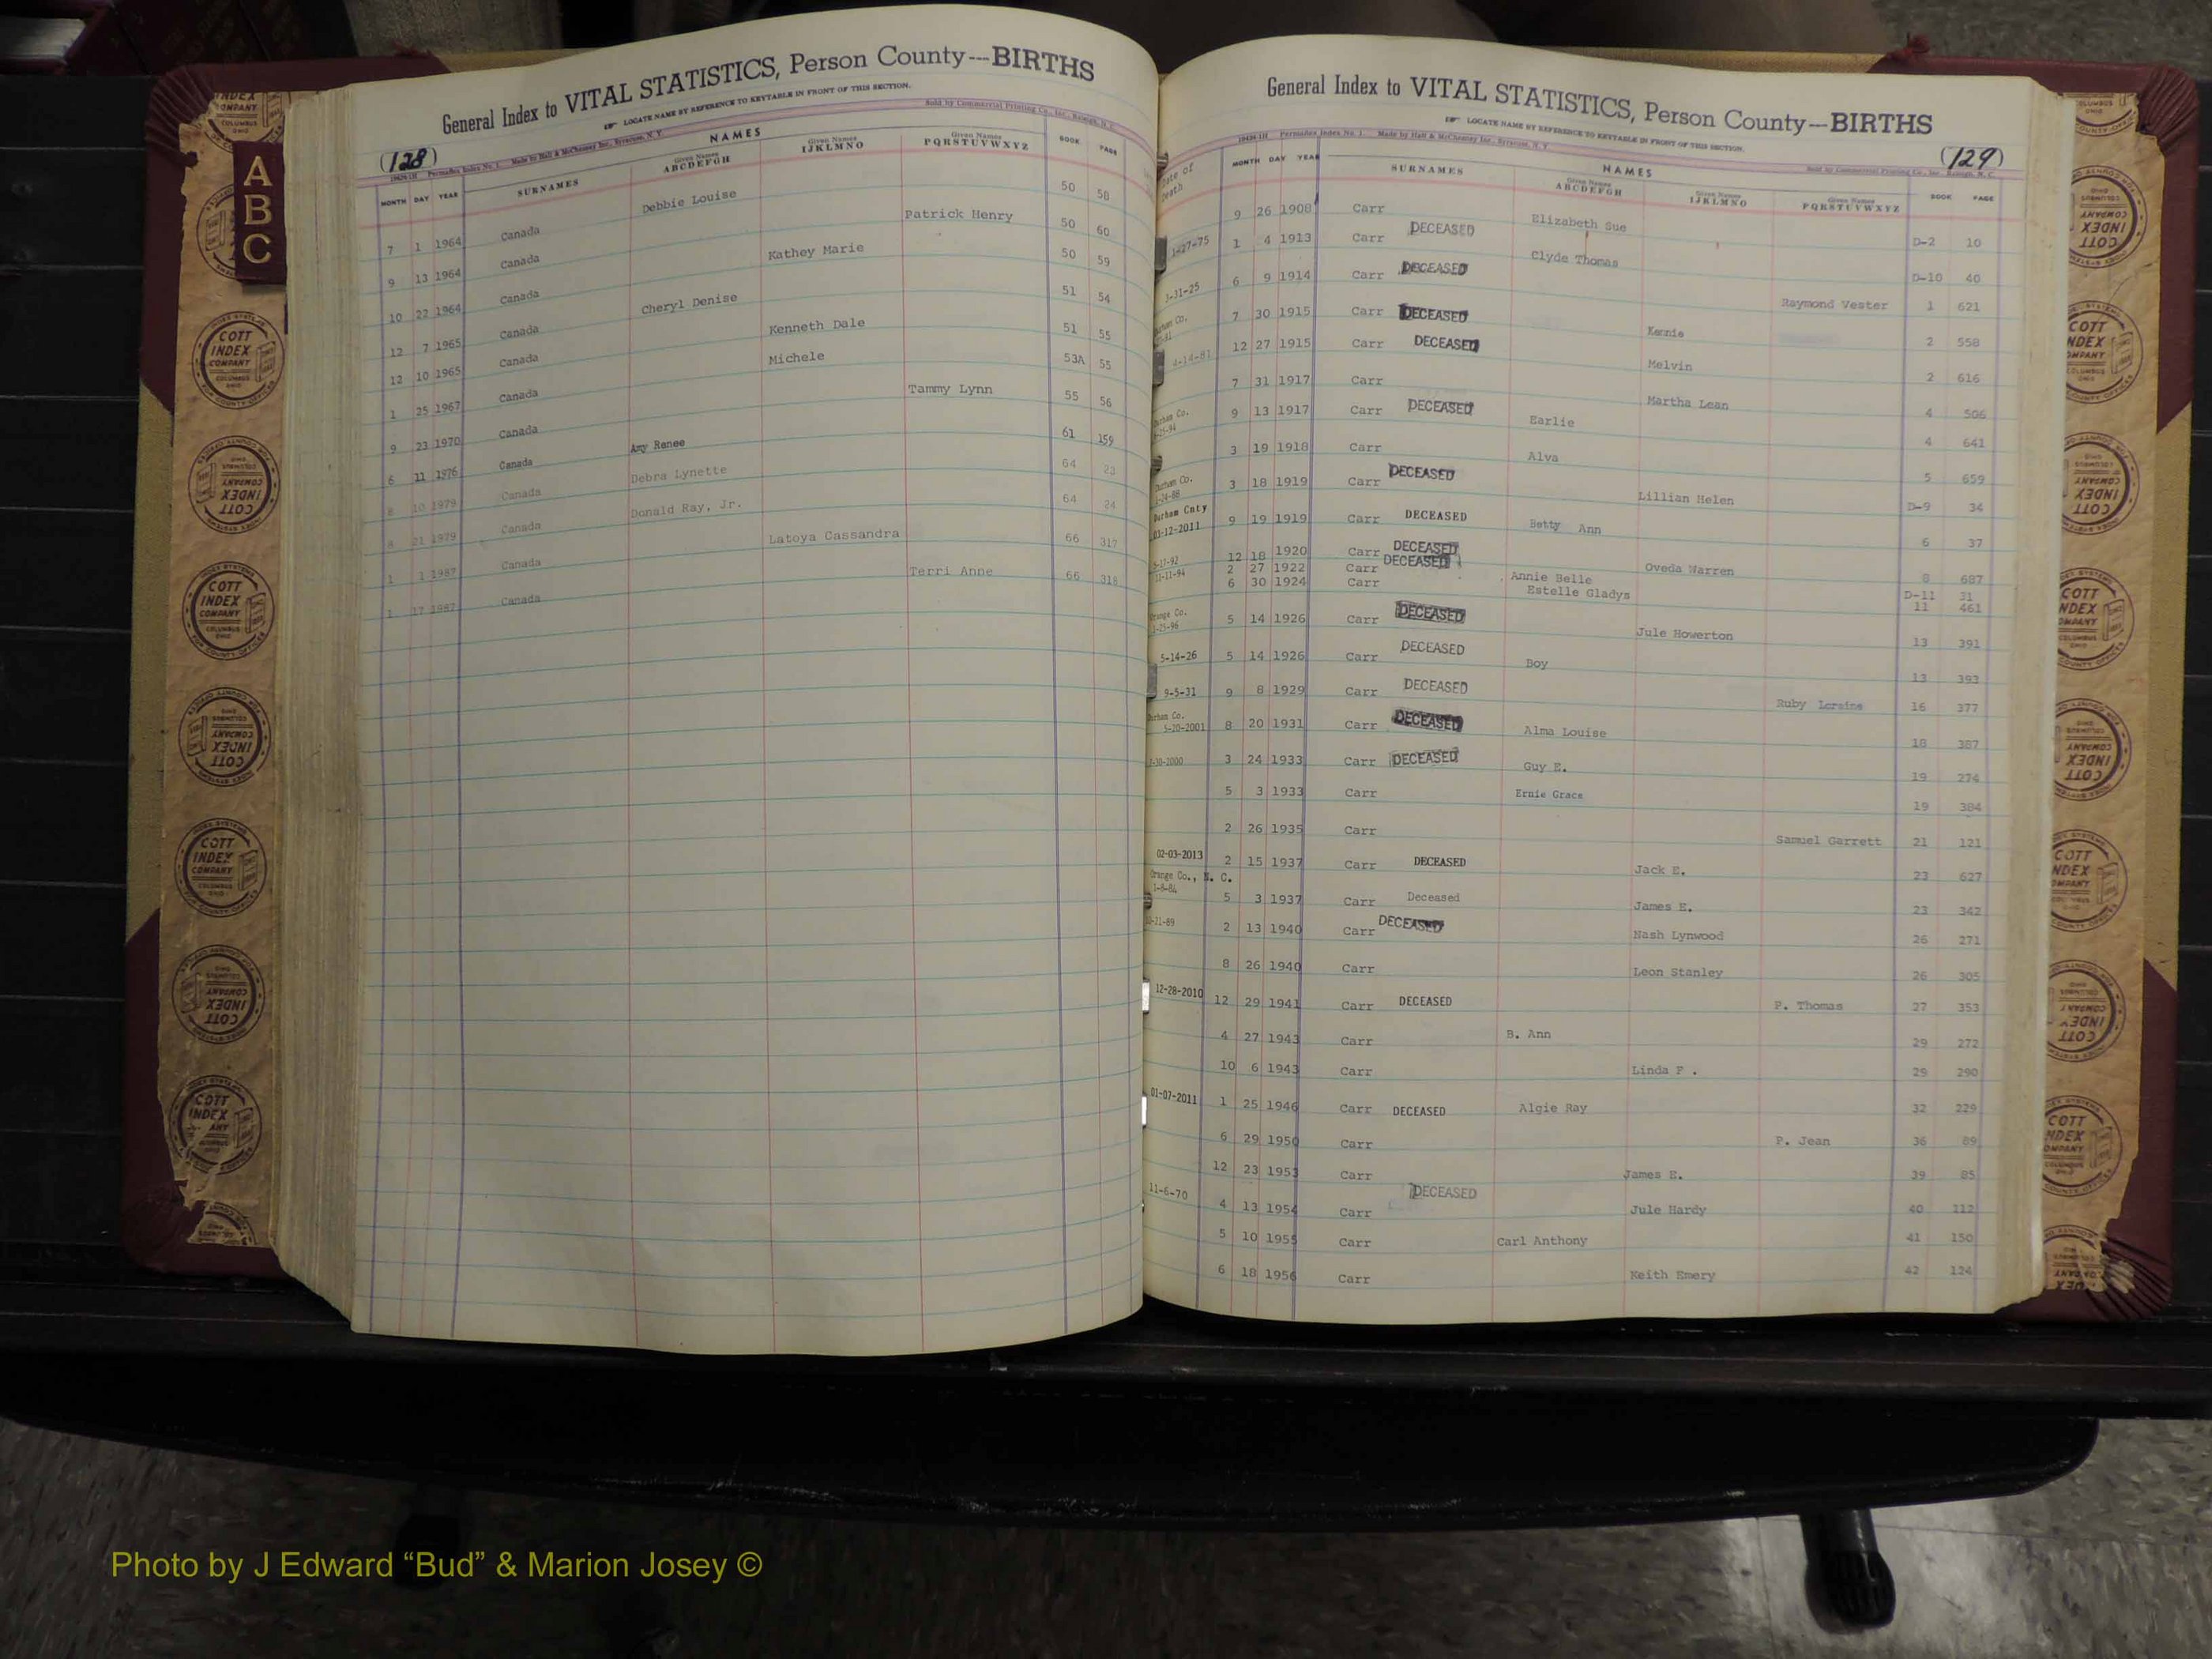 General Index to VITAL STATISTICS, Person County—BIRTHS
LOCATE NAME BY REFERENCE TO KEYTABLE IN FRONT OF THIS SECTION.
(128)
Made by Hall & McChesney Inc., Syracuse, N.Y.
Sold by Commercial Printing Co., Inc., Raleigh, N.C.
NAMES
MONTH DAY YEAR SURNAMES Given Names ABCDEFGH Given Names IJKLMNO Given Names PQRSTUVWXYZ BOOK PAGE
7 1 1964 Canada Debbie Louise 50 58
9 13 1964 Canada Patrick Henry 50 60
10 22 1964 Canada Kathey Marie 50 59
12 7 1965 Canada Cheryl Denise 51 54
12 10 1965 Canada Kenneth Dale 51 55
1 25 1967 Canada Michele 53A 55
9 23 1970 Canada Tammy Lynn 55 56
6 11 1976 Canada Amy Renee 61 159
8 10 1979 Canada Debra Lynette 64 23
8 21 1979 Canada Donald Ray, Jr. 64 24
1 1 1987 Canada Latoya Cassandra 66 317
1 17 1987 Canada Terri Anne 66 318
A
B
C
General Index to VITAL STATISTICS, Person County—BIRTHS
LOCATE NAME BY REFERENCE TO KEYTABLE IN FRONT OF THIS SECTION.
(129)
Permaflex Index No. 1. Made by Hall & McChesney Inc., Syracuse, N.Y.
Sold by Commercial Printing Co., Inc., Raleigh, N.C.
NAMES
Date of Death MONTH DAY YEAR SURNAMES Given Names ABCDEFGH Given Names IJKLMNO Given Names PQRSTUVWXYZ BOOK PAGE
9 26 1908 Carr Elizabeth Sue D-2 10
1-27-75 1 4 1913 Carr DECEASED Clyde Thomas D-10 40
3-31-25 6 9 1914 Carr DECEASED Raymond Vester 1 621
Durham Co. 7 30 1915 Carr DECEASED Kennie 2 558
4-14-81 12 27 1915 Carr DECEASED Melvin 2 616
7 31 1917 Carr Martha Lean 4 506
Durham Co. 9 13 1917 Carr DECEASED Earlie 4 641
3 19 1918 Carr Alva 5 659
Durham Co. 3 18 1919 Carr DECEASED Lillian Helen D-9 34
Durham Cnty 03-12-2011 9 19 1919 Carr DECEASED Betty Ann 6 37
12 18 1920 Carr DECEASED Oveda Warren 8 687
11-11-94 2 27 1922 Carr DECEASED Annie Belle D-11 31
6 30 1924 Carr Estelle Gladys 11 461
Orange Co. 5 14 1926 Carr DECEASED Jule Howerton 13 391
5-14-26 5 14 1926 Carr DECEASED Boy 13 393
9-5-31 9 8 1929 Carr DECEASED Ruby Loraine 16 377
Durham Co. 5-20-2001 8 20 1931 Carr DECEASED Alma Louise 18 387
3 24 1933 Carr DECEASED Guy E. 19 274
5 3 1933 Carr Ernie Grace 19 384
2 26 1935 Carr Samuel Garrett 21 121
02-03-2013 2 15 1937 Carr DECEASED Jack E. 23 627
Orange Co., N. C. 1-8-84 5 3 1937 Carr Deceased James E. 23 342
2 13 1940 Carr DECEASED Nash Lynwood 26 271
8 26 1940 Carr Leon Stanley 26 305
12-28-2010 12 29 1941 Carr DECEASED P. Thomas 27 353
4 27 1943 Carr B. Ann 29 272
10 6 1943 Carr Linda F. 29 290
01-07-2011 1 25 1946 Carr DECEASED Algie Ray 32 229
6 29 1950 Carr P. Jean 36 89
12 23 1953 Carr James E. 39 85
11-6-70 4 13 1954 Carr DECEASED Jule Hardy 40 112
5 10 1955 Carr Carl Anthony 41 150
6 18 1956 Carr Keith Emery 42 124
COTT INDEX COMPANY
Photo by J Edward “Bud” & Marion Josey ©